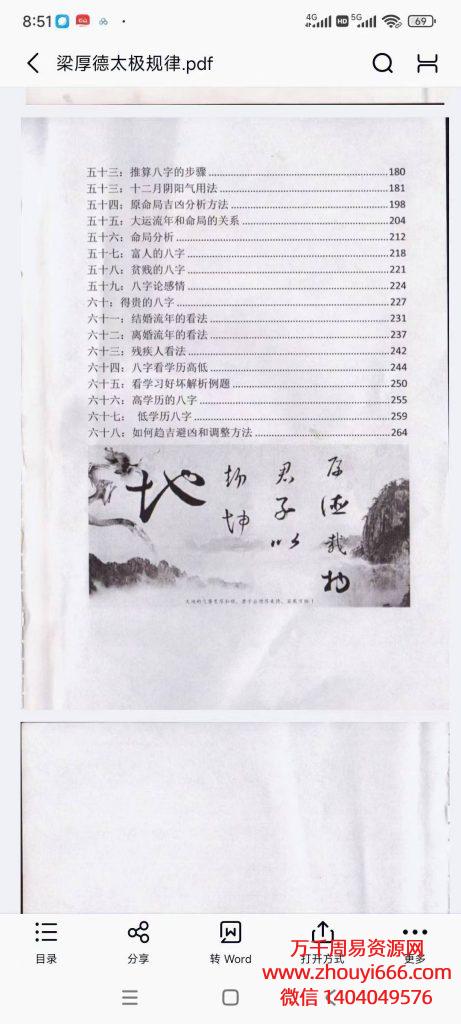 8:51
4G
HD
5G
69
梁厚德太极规律.pdf
五十三：推算八字的步骤 180
五十三：十二月阴阳气用法 181
五十四：原命局吉凶分析方法 198
五十五：大运流年和命局的关系 204
五十六：命局分析 212
五十七：富人的八字 218
五十八：贫贱的八字 221
五十九：八字论感情 224
六十：得贵的八字 227
六十一：结婚流年的看法 231
六十二：离婚流年的看法 237
六十三：残疾人看法 242
六十四：八字看学历高低 244
六十五：看学习好坏解析例题 250
六十六：高学历的八字 255
六十七： 低学历八字 259
六十八：如何趋吉避凶和调整方法 264
地
坤
君子以
厚德载物
目录
分享
转 Word
打开方式
更多
万千周易资源网
www.zhouyi666.com
微信 1404049576